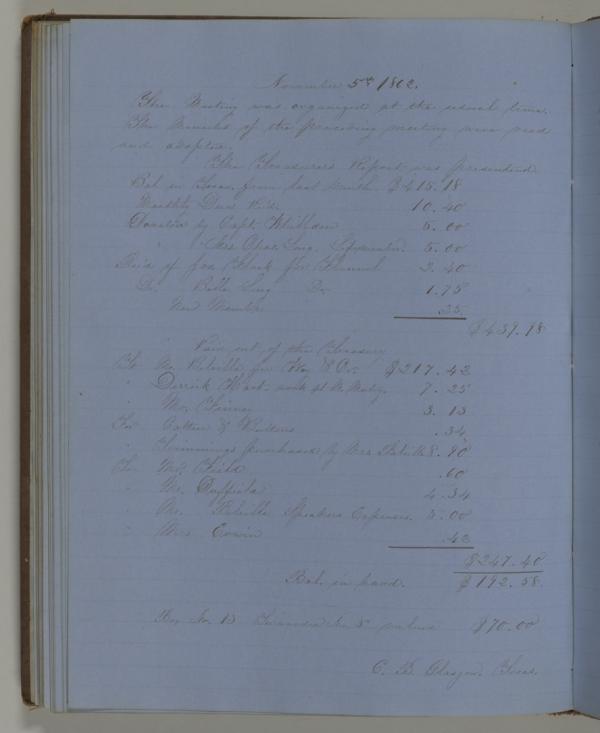 November 5th 1862.
The Meeting was organized at the usual time.
The Minutes of the preceeding meeting were read
and adopted.
The Treasurers Report was presented.
Bal in Treas. from last Month $415.18
Monthly Dues Rec. 10.40
Donation by Capt. Whilldin 5.00
" Mrs Chas. Long. 5.00
Rec'd of for Flannel 3.40
Do. Long Do 1.75
New Member .25
$439.98
Paid out of the Treasury
To Mr. for $217.43
" Derrick 7.25
" Mr. 3.13
For Cotton & Buttons .34
" Trimmings purchased by Mrs 8.90
To Mrs Field .60
" Mr. Duffield 4.34
" Mr. Speakers Expenses. 5.00
" Mrs. Erwin .43
$247.40
Bal. in hand. $192.58.
Box No. 13 5th valued $70.00
C. B. Glasgow. Treas.